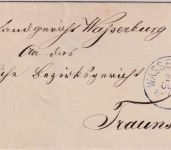 Landgericht Wasserburg
An das
che Bezirksgericht
Trauns
WASSE